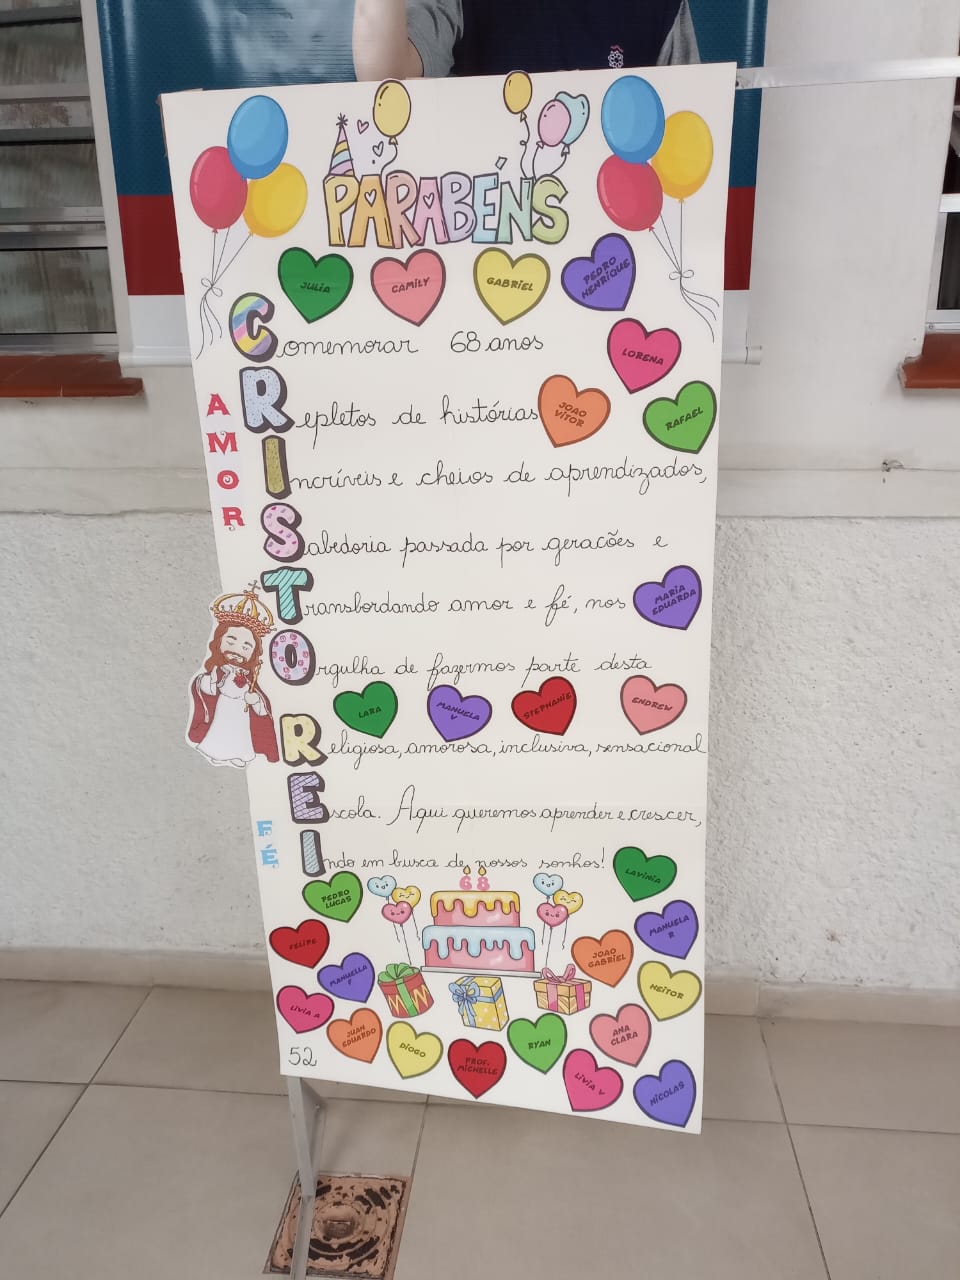 PARABÉNS
JULIA CAMILY GABRIEL PEDRO HENRIQUE
Comemorar 68 anos
LORENA
Repletos de histórias
JOAO VITOR RAFAEL
Incríveis e cheios de aprendizados,
Sabedoria passada por geracões e
Transbordando amor e fé, nos
MARIA EDUARDA
Orgulha de fazermos parte desta
LARA MANUELA V STEPHANIE ENDREW
Religiosa, amorosa, inclusiva, sensacional
Escola. Aqui queremos aprender e crescer,
Indo em busca de nossos sonhos!
AMOR
FÉ
68
LAVÍNIA
PEDRO LUCAS
MANUELA R
FELIPE
JOAO GABRIEL
MANUELLA F
HEITOR
LIVIA A
JUAN EDUARDO
DIOGO
RYAN
ANA CLARA
PROF. MICHELLE
LIVIA V
NICOLAS
52